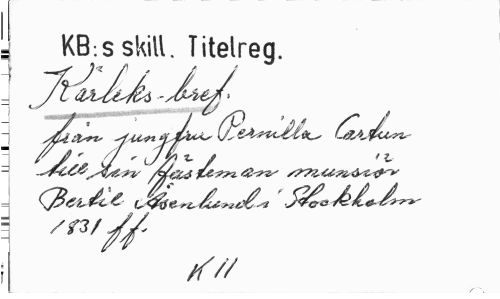 KB:s skill. Titelreg.
Kärleks-bref.
från jungfru Pernilla Cartun
till sin fästeman munsiör
Bertil Åsenlund i Stockholm
1831 ff.
K 11